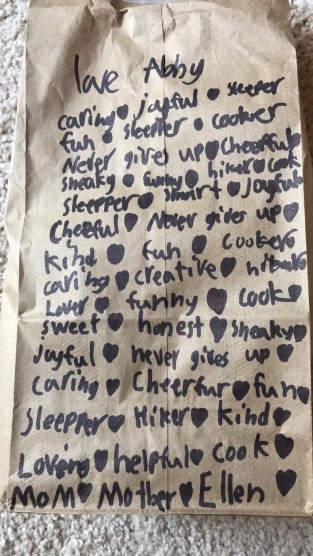 love Abby
caring joyful sleeper
fun sleeper cooker
Never gives up Cheerful
sneaky funny hiker cook
sleepper smart joyful
Cheeful Never gives up
kind fun cooker
caring creative
Lover funny cook
sweet honest sneaky
Joyful never gives up
caring Cheerfur fun
sleepper Hiker kind
Loving helpful cook
MoM Mother Ellen